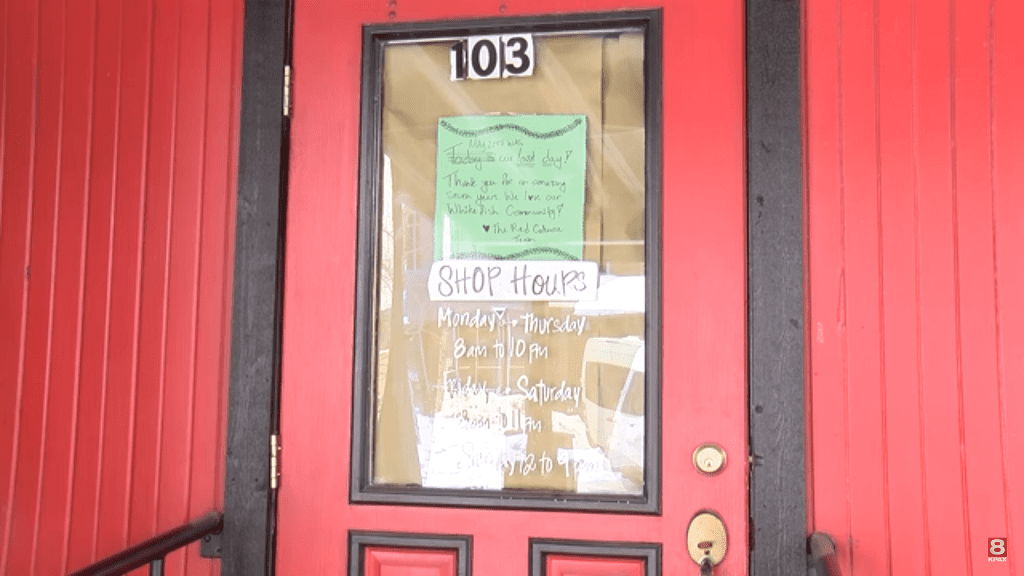 103
our last day!
Thank you for an amazing
seven years. We ♥ our
Whitefish Community!
♥ The Red Caboose
Team
SHOP HOURS
Monday → Thursday
8am to 10pm
Friday → Saturday
8am to 11pm
Sunday 12 to 9pm
8
KPAX